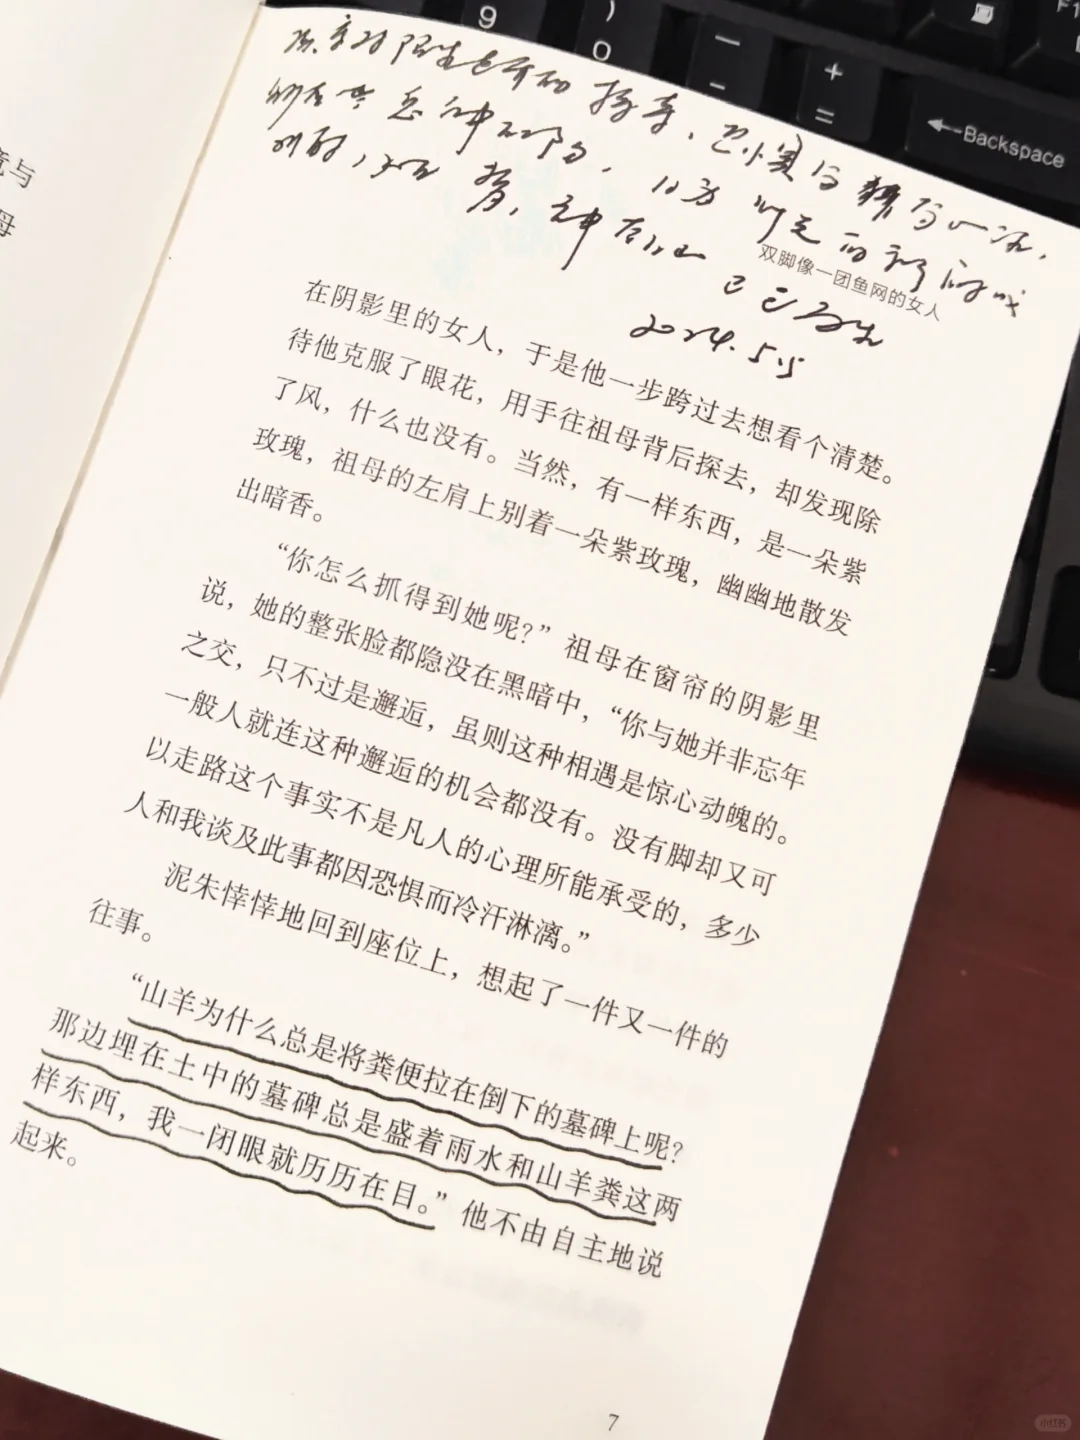 9
)
0
—
-
+
=
F1
←Backspace
竟与
母
双脚像一团鱼网的女人
2024.5.15
在阴影里的女人，于是他一步跨过去想看个清楚。
待他克服了眼花，用手往祖母背后探去，却发现除
了风，什么也没有。当然，有一样东西，是一朵紫
玫瑰，祖母的左肩上别着一朵紫玫瑰，幽幽地散发
出暗香。
“你怎么抓得到她呢？”祖母在窗帘的阴影里
说，她的整张脸都隐没在黑暗中，“你与她并非忘年
之交，只不过是邂逅，虽则这种相遇是惊心动魄的。
一般人就连这种邂逅的机会都没有。没有脚却又可
以走路这个事实不是凡人的心理所能承受的，多少
人和我谈及此事都因恐惧而冷汗淋漓。”
泥朱悻悻地回到座位上，想起了一件又一件的
往事。
“山羊为什么总是将粪便拉在倒下的墓碑上呢？
那边埋在土中的墓碑总是盛着雨水和山羊粪这两
样东西，我一闭眼就历历在目。”他不由自主地说
起来。
7
小红书